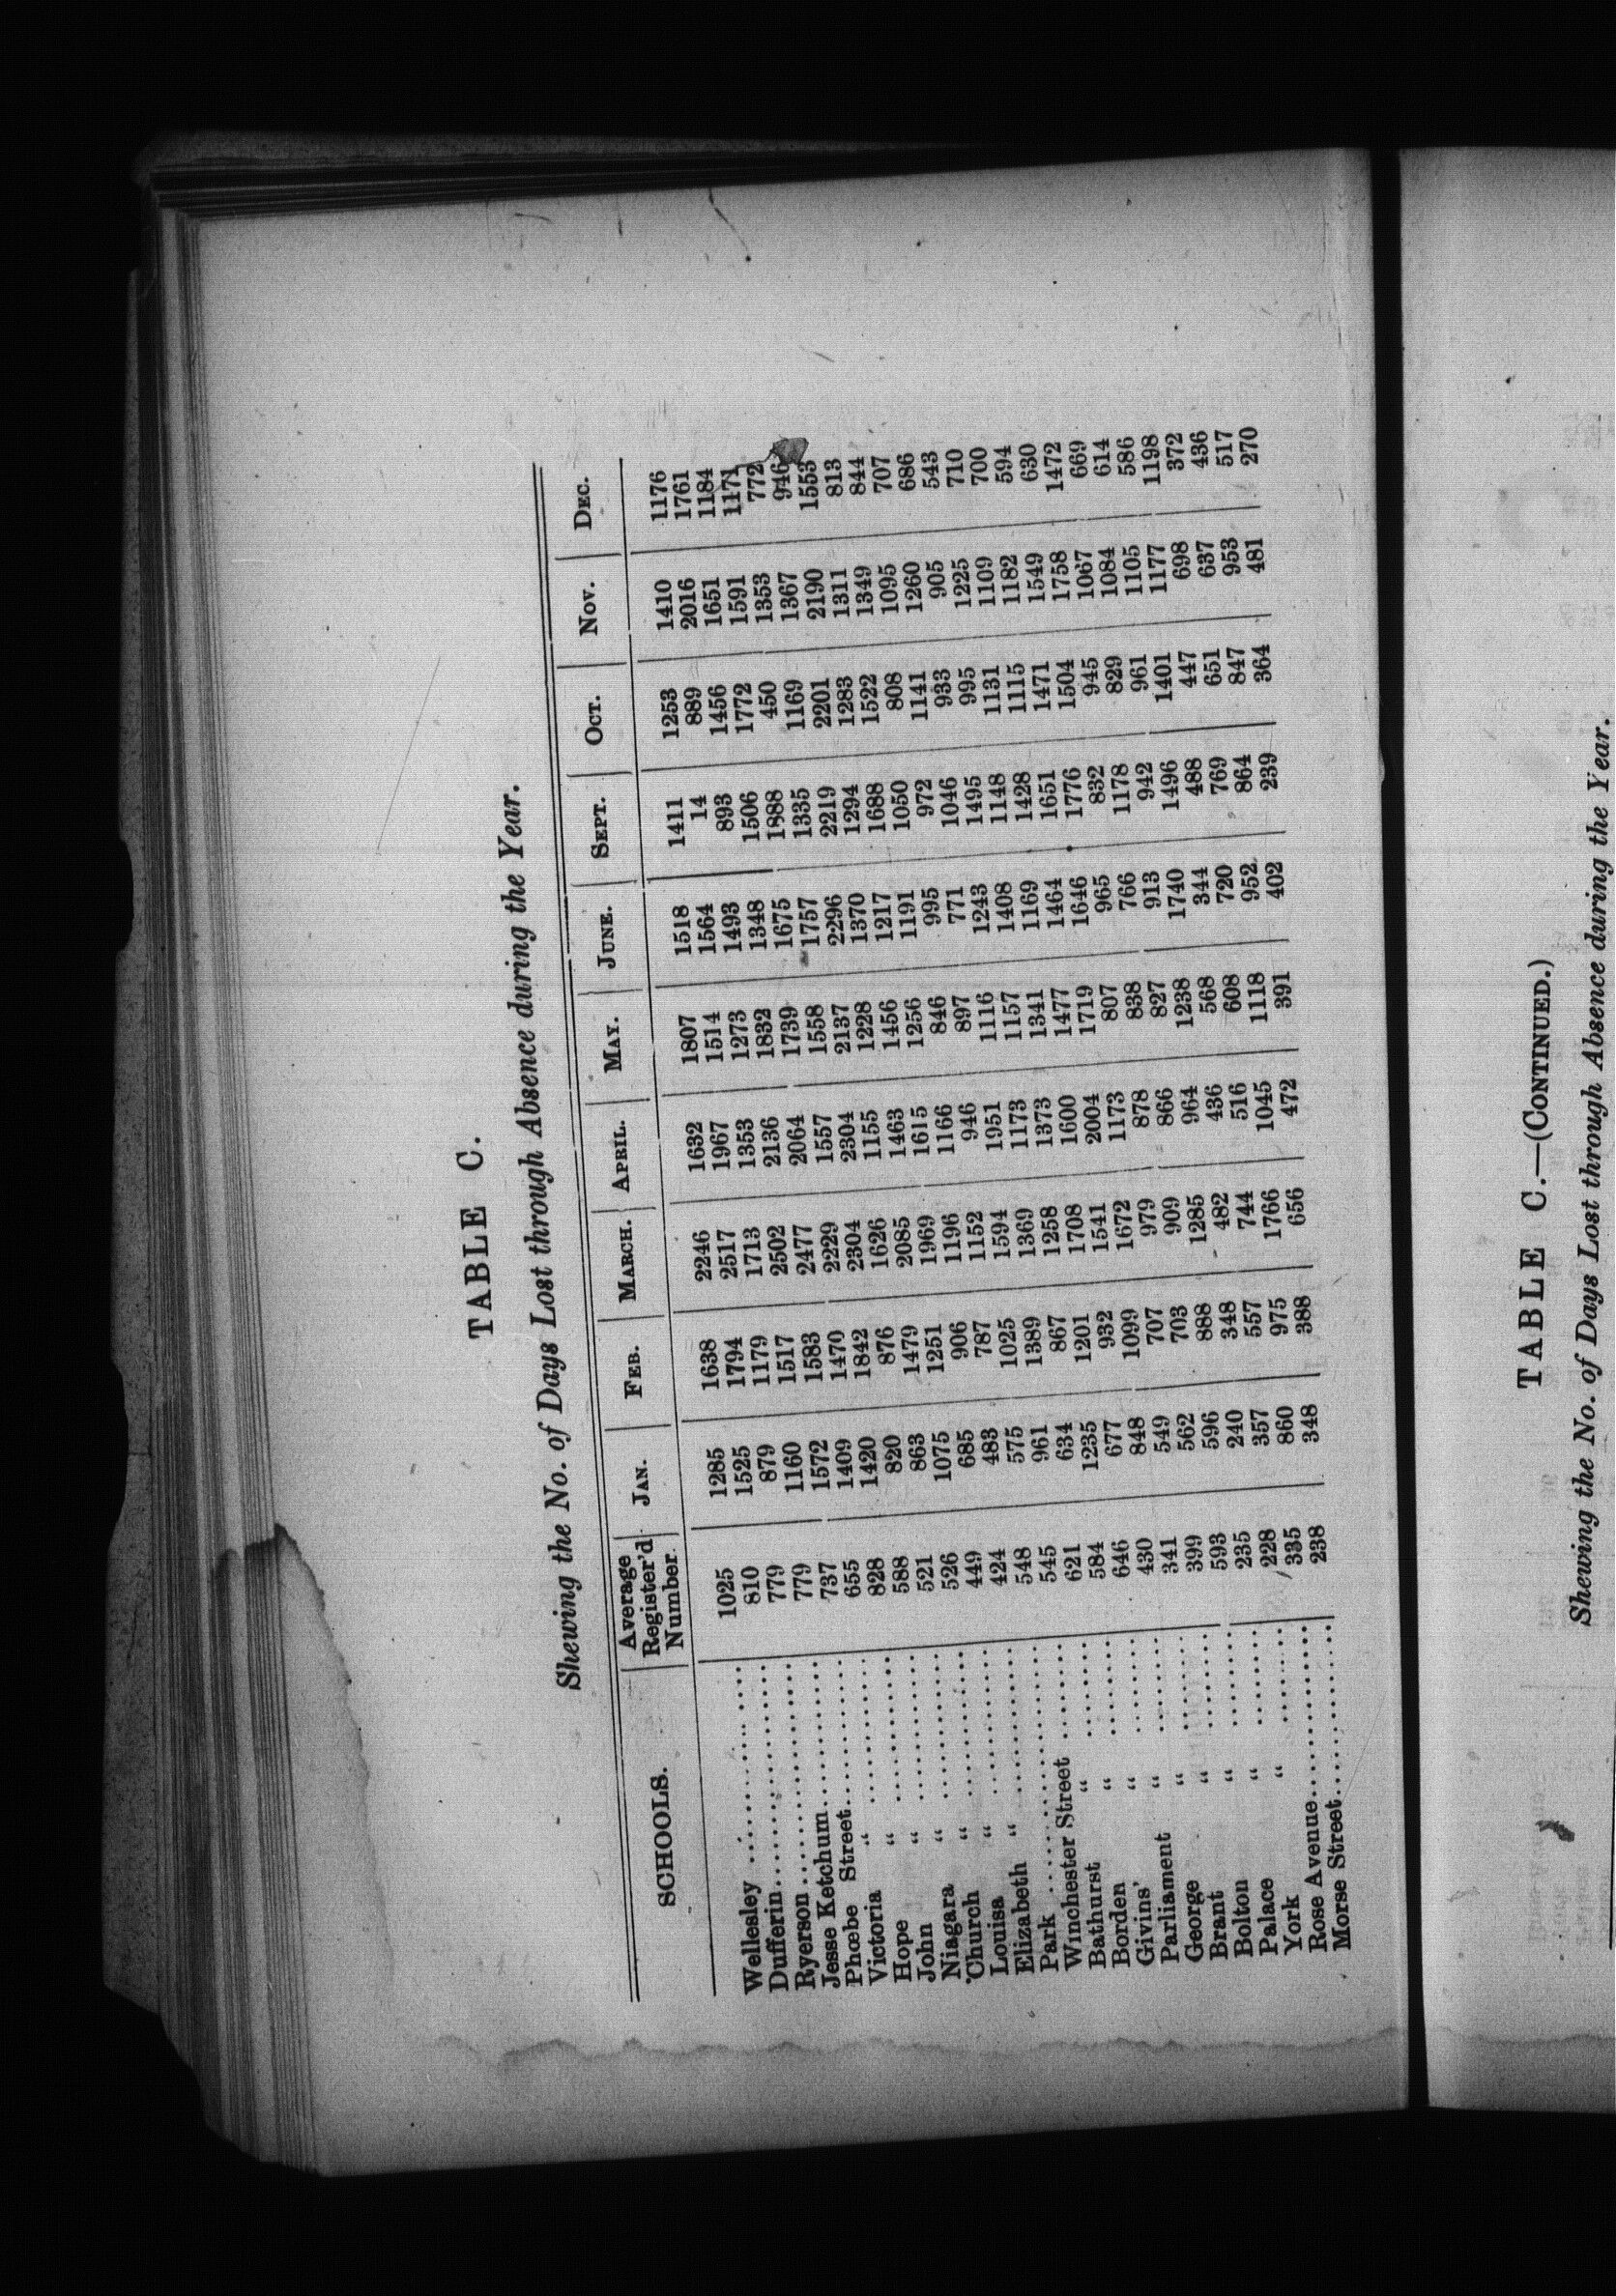 TABLE C.
Shewing the No. of Days Lost through Absence during the Year.
SCHOOLS. Average Register'd Number. JAN. FEB. MARCH. APRIL. MAY. JUNE. SEPT. OCT. NOV. DEC.
Wellesley 1025 1285 1638 2246 1632 1807 1518 1411 1253 1410 1176
Dufferin 810 1525 1794 2517 1967 1514 1564 14 889 2016 1761
Ryerson 779 879 1179 1713 1353 1273 1493 893 1456 1651 1184
Jesse Ketchum 779 1160 1517 2502 2136 1832 1348 1506 1772 1591 1171
Phœbe Street 737 1572 1583 2477 2064 1739 1675 1888 450 1353 772
Victoria " 655 1409 1470 2229 1557 1558 1757 1335 1169 1367 946
Hope " 828 1420 1842 2304 2304 2137 2296 2219 2201 2190 1553
John " 588 820 876 1626 1155 1228 1370 1294 1283 1311 813
Niagara " 521 863 1479 2085 1463 1456 1217 1688 1522 1349 844
Church " 526 1075 1251 1969 1615 1256 1191 1050 808 1095 707
Louisa " 449 685 906 1196 1166 846 995 972 1141 1260 686
Elizabeth " 424 483 787 1152 946 897 771 1046 933 905 543
Park 548 575 1025 1594 1951 1116 1243 1495 995 1225 710
Winchester Street 545 961 1389 1369 1173 1157 1408 1148 1131 1109 700
Bathurst " 621 634 867 1258 1373 1341 1169 1428 1115 1182 594
Borden " 584 1235 1201 1708 1600 1477 1464 1651 1471 1549 630
Givins' " 646 677 932 1541 2004 1719 1646 1776 1504 1758 1472
Parliament " 430 848 1099 1672 1173 807 965 832 945 1067 669
George " 341 549 707 979 878 838 766 1178 829 1084 614
Brant " 399 562 703 909 866 827 913 942 961 1105 586
Bolton " 593 596 888 1285 964 1238 1740 1496 1401 1177 1198
Palace " 235 240 348 482 436 568 344 488 447 698 372
York " 228 357 557 744 516 608 720 769 651 637 436
Rose Avenue 335 860 975 1766 1045 1118 952 864 847 953 517
Morse Street 238 348 388 656 472 391 402 239 364 481 270
TABLE C.—(CONTINUED.)
Shewing the No. of Days Lost through Absence during the Year.